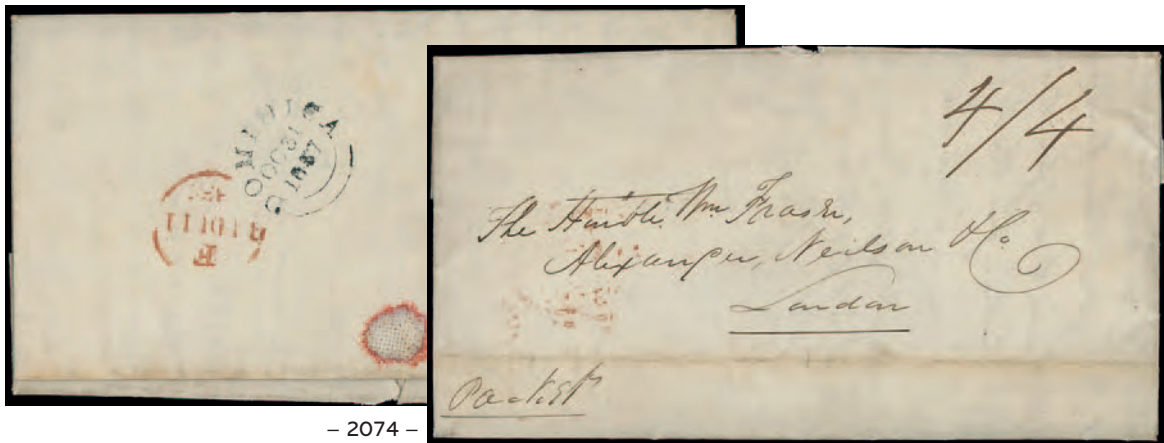 DOMINICA
OC 31
1837
F
4/4
The Honble. Wm Fraser,
Alexander, Neilson & Co
London
Packet
– 2074 –